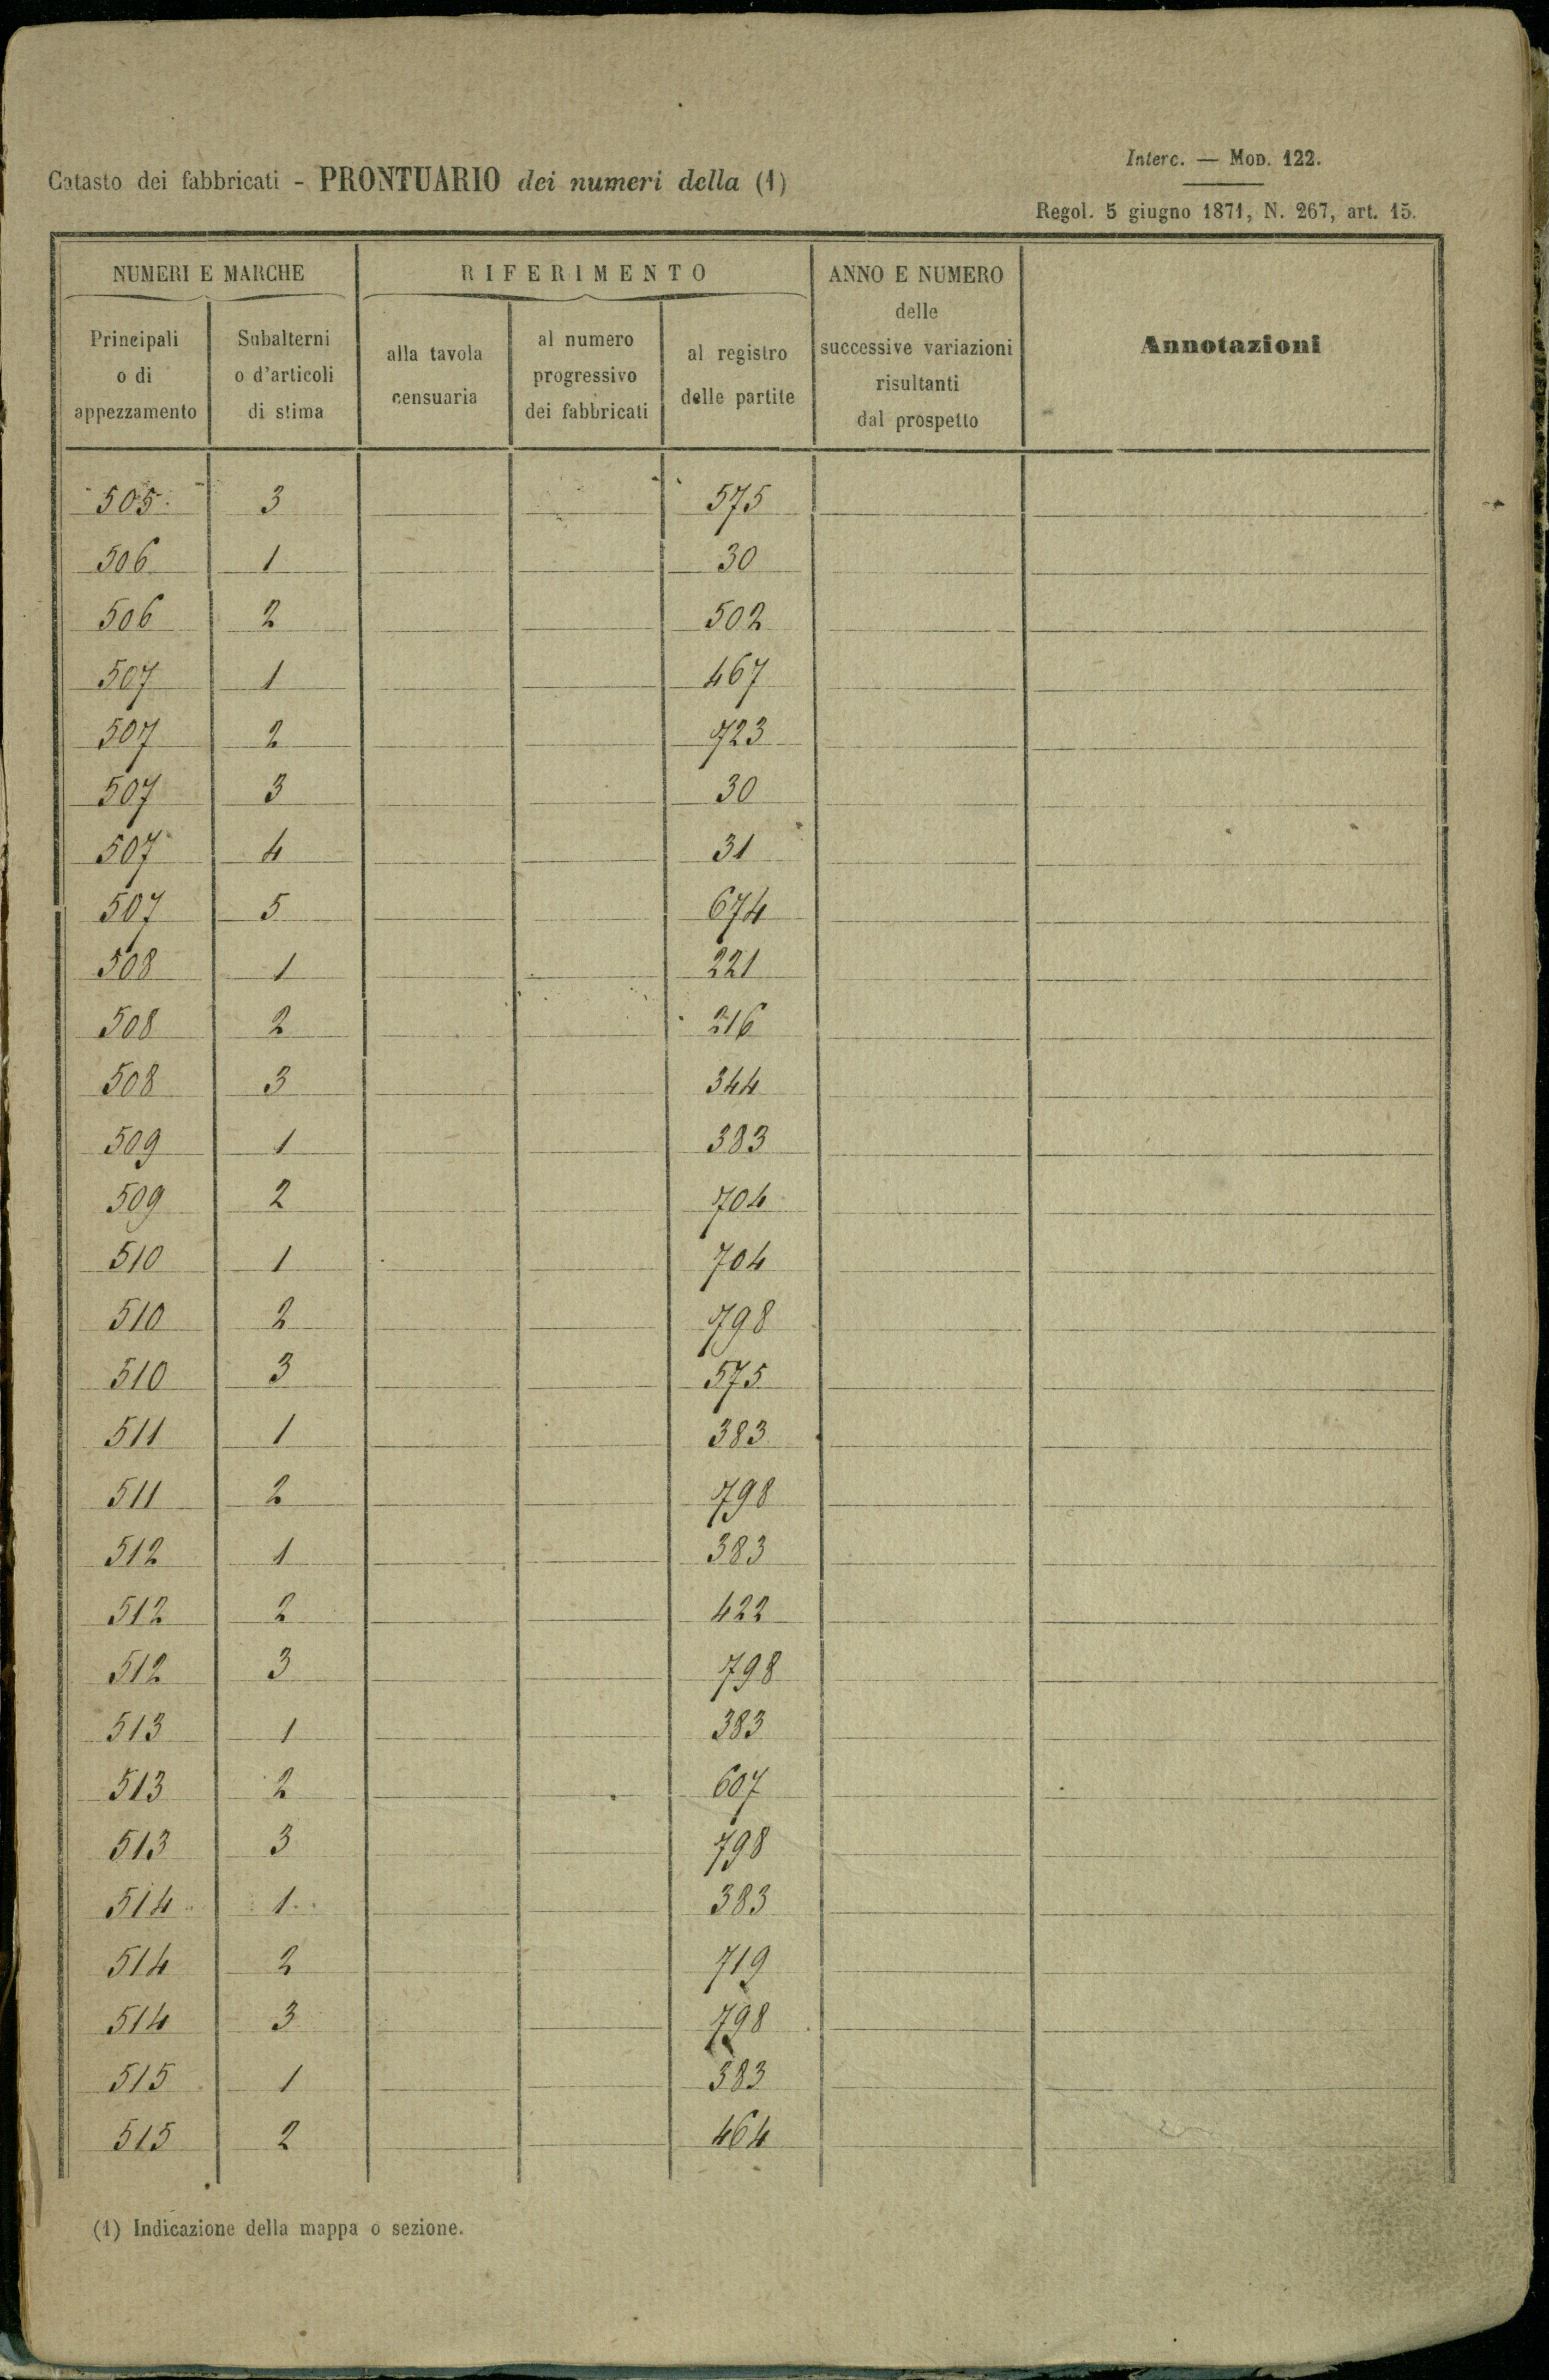 Interc. — Mod. 122.
Catasto dei fabbricati - PRONTUARIO dei numeri della (1)
Regol. 5 giugno 1871, N. 267, art. 15.
NUMERI E MARCHE
RIFERIMENTO
ANNO E NUMERO
delle
successive variazioni
risultanti
dal prospetto
Annotazioni
Principali
o di
appezzamento
Subalterni
o d'articoli
di stima
alla tavola
censuaria
al numero
progressivo
dei fabbricati
al registro
delle partite
505 3 575
506 1 30
506 2 502
507 1 467
507 2 723
507 3 30
507 4 31
507 5 674
508 1 221
508 2 216
508 3 344
509 1 383
509 2 704
510 1 704
510 2 798
510 3 575
511 1 383
511 2 798
512 1 383
512 2 422
512 3 798
513 1 383
513 2 607
513 3 798
514 1 383
514 2 719
514 3 798
515 1 383
515 2 464
(1) Indicazione della mappa o sezione.